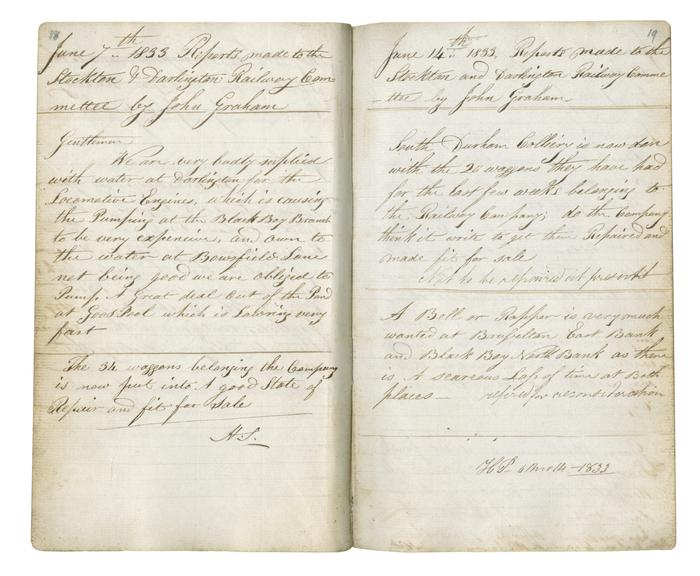 18
June 7th 1833 Reports made to the
Stockton & Darlington Railway Com
mettee by John Graham
Gentlemen
We are very badly suplied
with water at Darlington for the
Locomotive Engines, which is causing
the Pumping at the Black Boy Branch
to be very expencive, and own to
the water at Bowsfield Lane
not being good we are obliged to
Pump A Great deal out of the Pond
at Goos Pool which is Lowring very
fast
The 34 waggons belonging the Company
is now put into A good State of
Repair and fit for Sale
19
June 14th 1833. Reports made to the
Stockton and Darlington Railway Comme
-ttee by John Graham
South Durham Colliery is now don
with the 26 waggons they have had
for the last few weeks belonging to
the Railway Company; do the Company
think it write to get them Repaired and
made fit for sale
Not to be repaired at present
A Bell or Rapper is very much
wanted at Brusselton East Bank
and Black Boy North Bank as there
is A Loss of time at Both
places — refered for reconsideration
1833